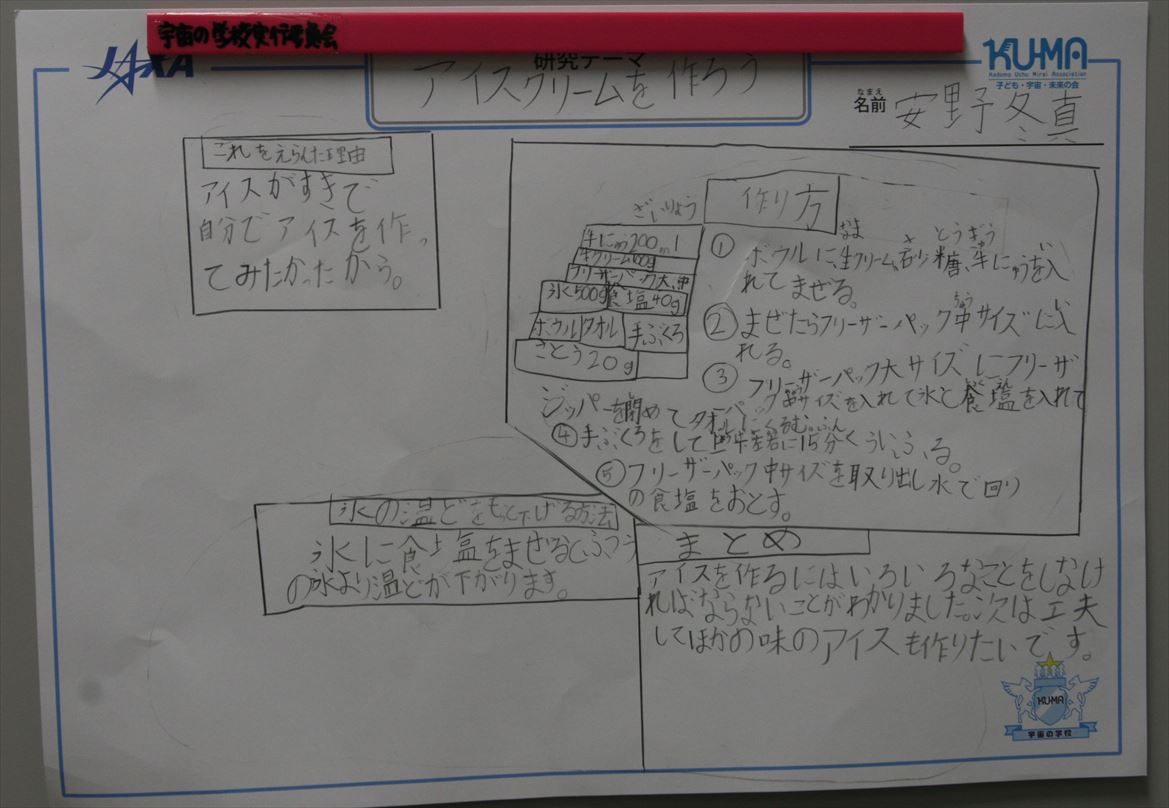 宇宙の学校実行委員会
JAXA
研究テーマ
アイスクリームを作ろう
KU-MA
Kodomo Uchu Mirai Association
子ども・宇宙・未来の会
なまえ
名前 安野冬真
これをえらんだ理由
アイスがすきで
自分でアイスを作っ
てみたかったから。
ざいりょう
牛にゅう200ml
生クリーム100g
フリーザーパック大、中
氷500g 食塩40g
ボウル タオル 手ぶくろ
さとう20g
作り方
①ボウルに生クリーム、砂糖、牛にゅうを入
れてまぜる。
②まぜたらフリーザーパック中サイズに入
れる。
③フリーザーパック大サイズにフリーザ
ーパック中サイズを入れて氷と食塩を入れて
ジッパーを閉めてタオルにくるむ。
④手ぶくろをして 15分くらいふる。
⑤フリーザーパック中サイズを取り出し水で回り
の食塩をおとす。
氷の温どをもっと下げる方法
氷に食塩をまぜるとふつう
の氷より温どが下がります。
まとめ
アイスを作るにはいろいろなことをしなけ
ればならないことがわかりました。次は工夫
してほかの味のアイスも作りたいです。
KU-MA
宇宙の学校